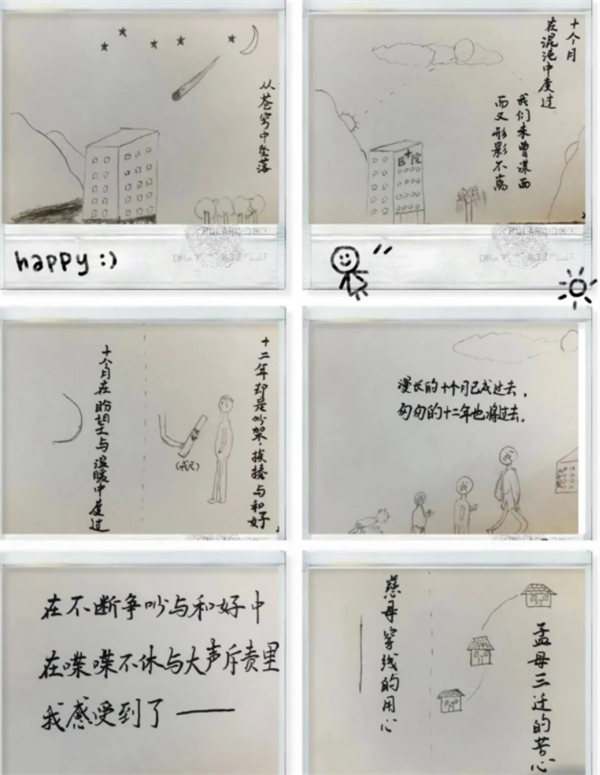 从苍穹中坠落
happy :)
十个月
在混沌中度过
我们未曾谋面
而又形影不离
医院
十个月在盼望与温暖中度过
十二年却是吵架、挨揍与和好
(戒尺)
漫长的十个月已成过去,
匆匆的十二年也将过去.
在不断争吵与和好中
在喋喋不休与大声斥责里
我感受到了——
慈母穿线的用心
孟母三迁的苦心